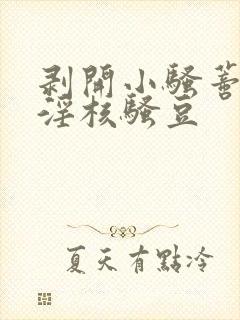 剥開小騷蕾
淫核騷豆
夏天有點冷